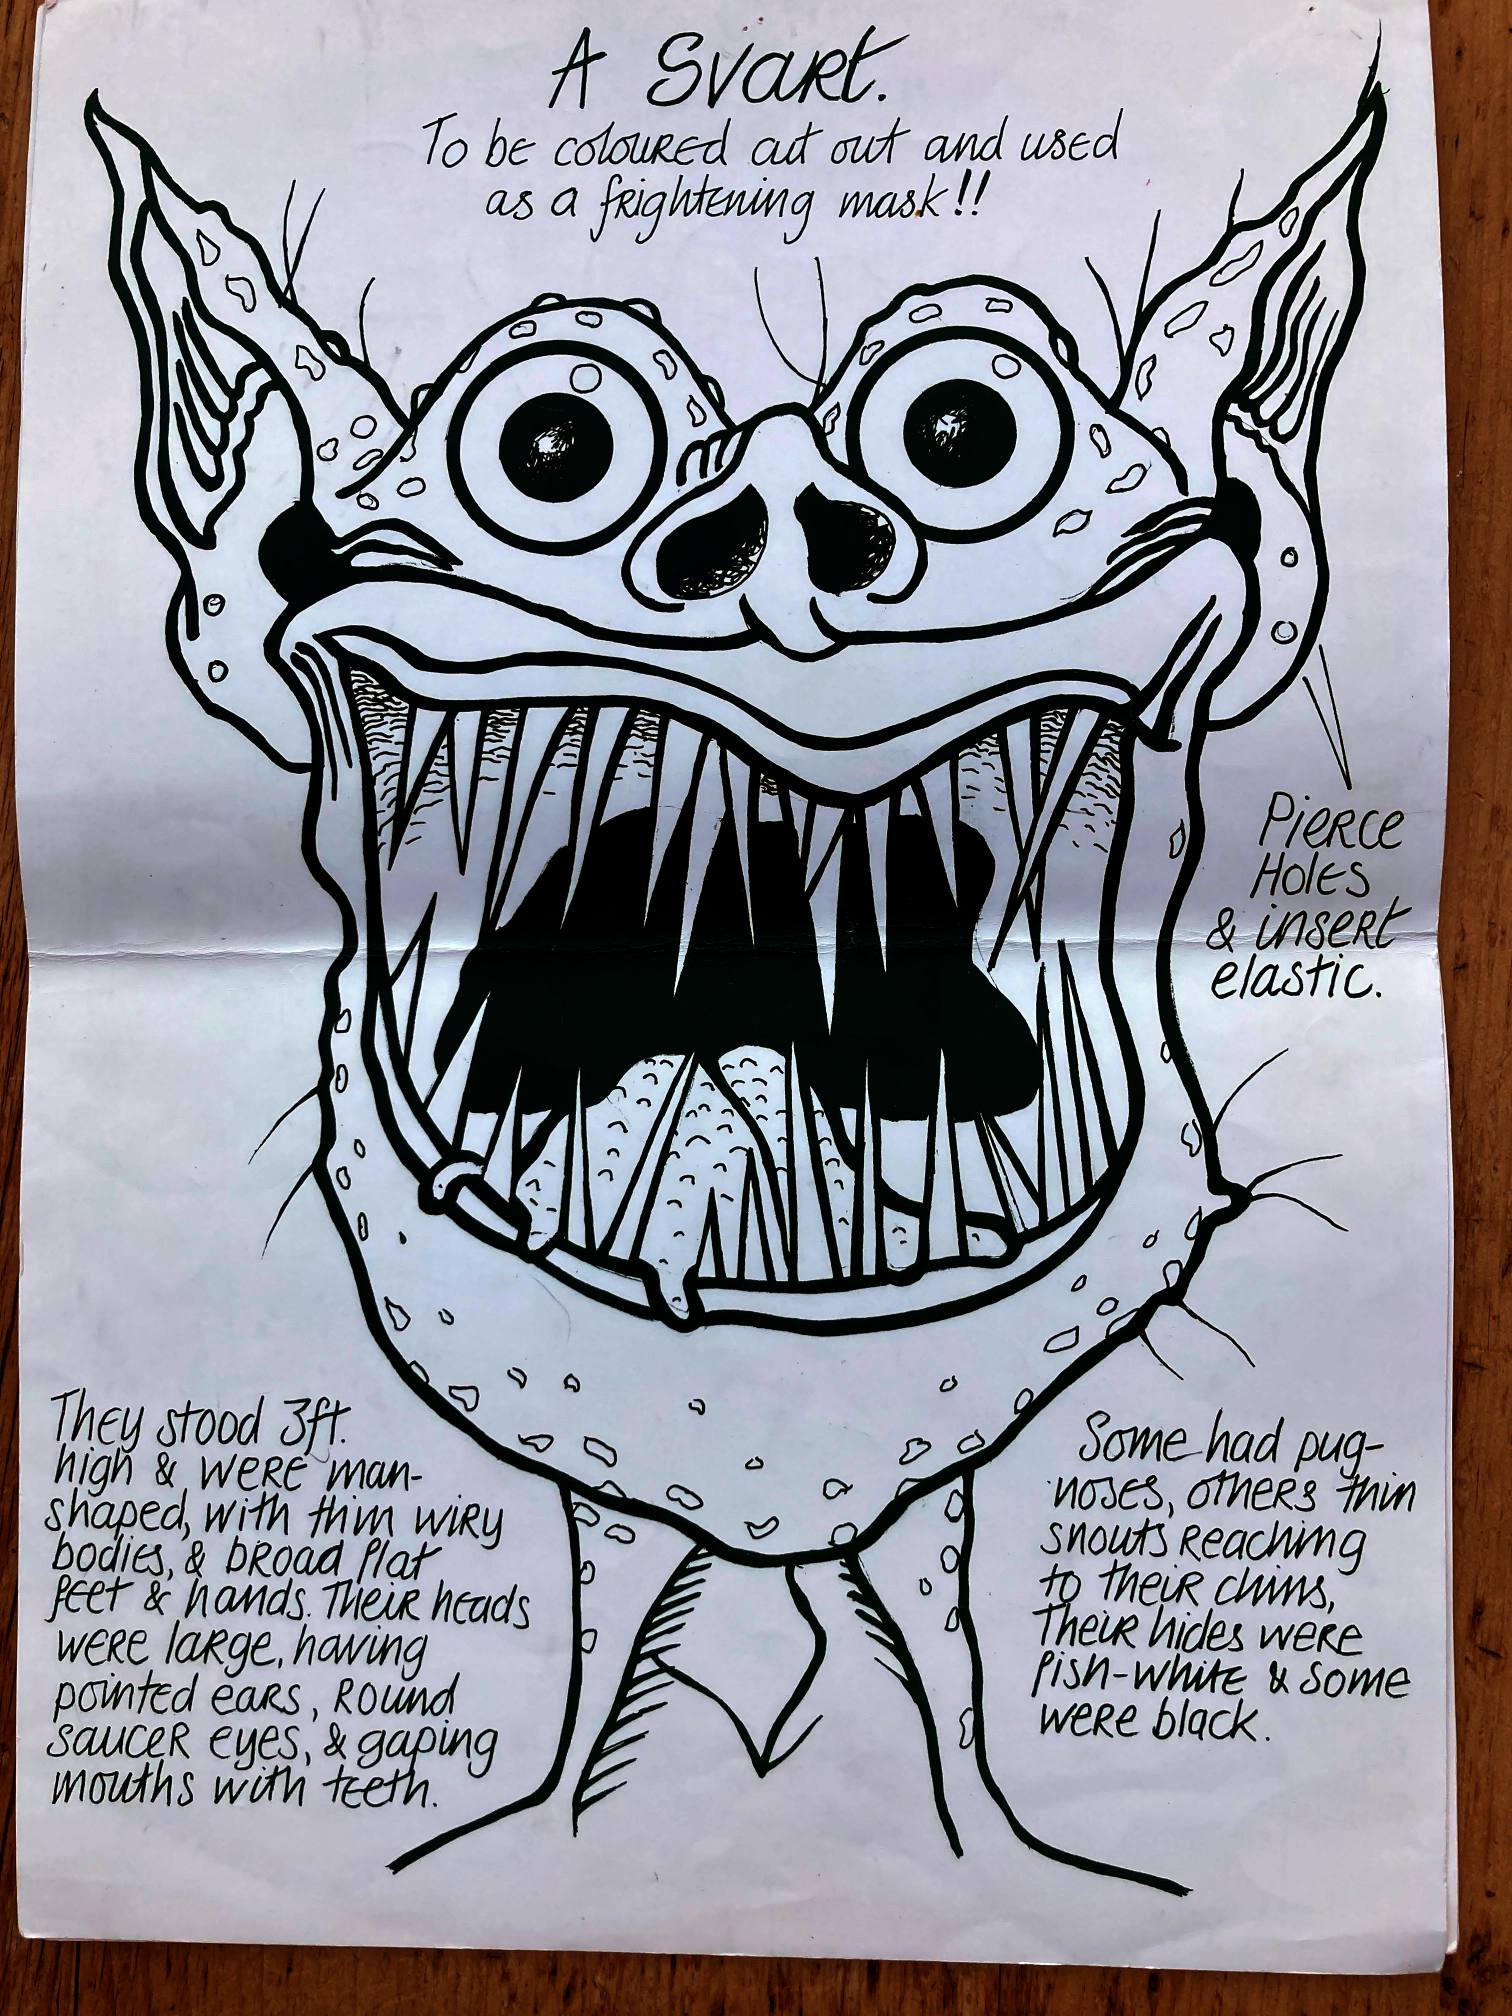 A Svart.
To be coloured cut out and used
as a frightening mask!!
Pierce
Holes
& insert
elastic.
They stood 3ft.
high & were man-
shaped, with thin wiry
bodies, & broad flat
feet & hands. Their heads
were large, having
pointed ears, round
saucer eyes, & gaping
mouths with teeth.
Some had pug-
noses, others thin
snouts reaching
to their chins,
Their hides were
fish-white & some
were black.